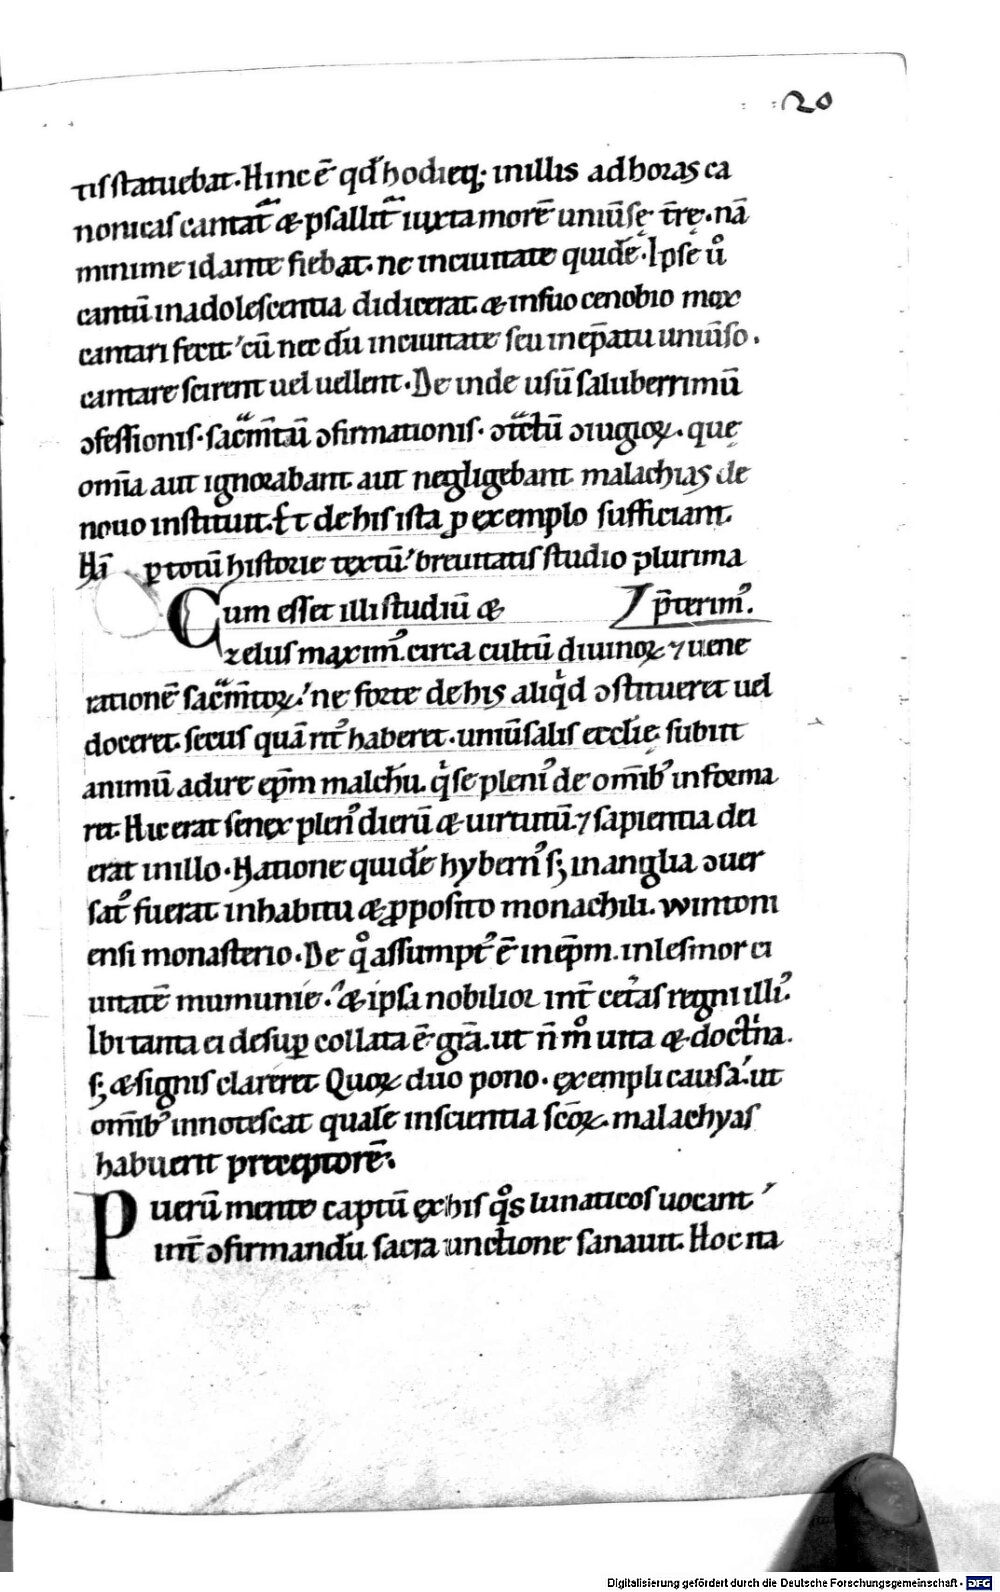 20
tis statuebat. Hinc ē qđ hodieq; in illis ad horas ca
nonicas cantat̄ & psallit̄ iuxta morē uniūsę tr̄ę. nā
minime id ante fiebat. ne in ciuitate quidē. Ipse ů
cantū in adolescentia didicerat. & in suo cenobio mox
cantari fecit. cū nec dū in ciuitate seu in ep̄atu uniūso.
cantare scirent uel uellent. De inde usū saluberrimū
ɔfessionis. sac̄mtū ɔfirmationis. ɔt̄ctū ɔiugioꝝ. que
om̄ia aut ignorabant aut negligebant malachias de
nouo instituit. Et de his ista ꝓ exemplo sufficiant.
Nā p totū historie textū breuitatis studio plurima
p̄terim᷒.
Cum esset illi studiū &
zelus maxim᷒. circa cultū diuinoꝝ ⁊ uene
rationē sac̄mtoꝝ. ne forte de his aliqͥd ɔstitueret uel
doceret. secus quā rit᷒ haberet. uniūsalis ecclīę. subiit
animū adire ep̄m malchū. qͥ se pleni᷒ de om̄ib᷒ informa
ret. Hic erat senex plen᷒ dierū & uirtutū. ⁊ sapientia dei
erat in illo. Natione quidē hybern᷒ sꝫ in anglia ɔuer
sat᷒ fuerat in habitu & ꝓposito monachili. wintoni
ensi monasterio. De qͦ assumpt᷒ ē in ep̄m. in lesmor ci
uitatē mumunię. & ipsa nobilior int̄ cet̄as regni illi᷒.
Ibi tanta ei desuꝑ collata ē gr̄a. ut n̄ mͦ uita & doctͥna.
sꝫ & signis clareret. Quoꝝ duo pono. exempli causa. ut
om̄ib᷒ innotescat quale in scientia sc̄oꝝ. malachyas
habuerit preceptorē.
Puerū mente captū ex his qͦs lunaticos uocant
int̄ ɔfirmandū sacra unctione sanauit. Hoc na
Digitalisierung gefördert durch die Deutsche Forschungsgemeinschaft - DFG